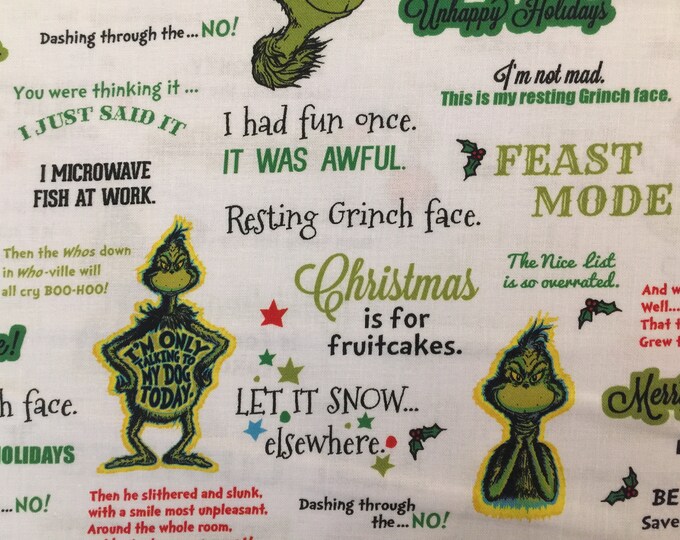 Dashing through the... NO!
Unhappy Holidays
You were thinking it ...
I JUST SAID IT
I'm not mad.
This is my resting Grinch face.
I had fun once.
IT WAS AWFUL.
I MICROWAVE
FISH AT WORK.
FEAST
MODE
Resting Grinch face.
Then the Whos down
in Who-ville will
all cry BOO-HOO!
The Nice List
is so overrated.
Christmas
is for
fruitcakes.
And w
Well...
That t
Grew t
e!
I'M ONLY
TALKING TO
MY DOG
TODAY.
h face.
LET IT SNOW...
elsewhere.
Merri
HOLIDAYS
... NO!
Then he slithered and slunk,
with a smile most unpleasant,
Around the whole room,
Dashing through
the... NO!
BE
Save